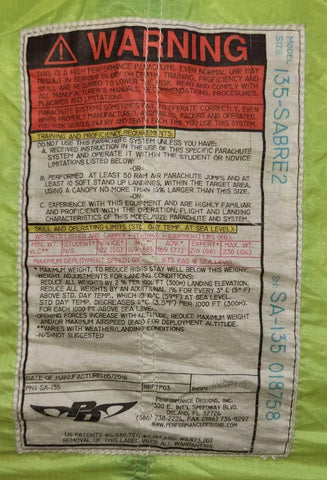 WARNING
THIS IS A HIGH PERFORMANCE PARACHUTE. EVEN NORMAL USE MAY
RESULT IN SERIOUS INJURY OR DEATH. TRAINING, PROFICIENCY AND
SKILL ARE REQUIRED TO LOWER THE RISK. READ AND COMPLY WITH
ALL MANUFACTURER'S MANUALS, RECOMMENDATIONS, PROCEDURES,
PLACARDS AND LIMITATIONS.
PARACHUTE SYSTEMS SOMETIMES FAIL TO OPERATE CORRECTLY, EVEN
WHEN PROPERLY MANUFACTURED, ASSEMBLED, PACKED AND OPERATED,
SO YOU RISK SERIOUS INJURY AND DEATH EACH TIME YOU USE THIS SYSTEM.
TRAINING AND PROFICIENCY REQUIREMENTS:
DO NOT USE THIS PARACHUTE SYSTEM UNLESS YOU HAVE:
A. RECEIVED INSTRUCTION IN THE USE OF THIS SPECIFIC PARACHUTE
SYSTEM AND OPERATE IT WITHIN THE STUDENT OR NOVICE
LIMITATIONS LISTED BELOW:
-OR-
B. PERFORMED AT LEAST 50 RAM AIR PARACHUTE JUMPS AND AT
LEAST 10 SOFT STAND UP LANDINGS, WITHIN THE TARGET AREA,
USING A CANOPY NO MORE THAN 15% LARGER THAN THIS SIZE.
-OR-
C. EXPERIENCE WITH THIS EQUIPMENT AND ARE HIGHLY FAMILIAR
AND PROFICIENT WITH THE OPERATION, FLIGHT AND LANDING
CHARACTERISTICS OF THIS MODEL/SIZE PARACHUTE AND SYSTEM.
SKILL AND OPERATING LIMITS (STD. DAY TEMP. AT SEA LEVEL):
WEIGHTS LISTED ARE JUMPER + CLOTHES + EQUIPMENT LBS (KG)
MIN WT. STUDENT* NOVICE* INT.* ADV.* EXPERT* MAX. WT.
MAXIMUM DEPLOYMENT SPEED: KTS EAS @ SEA LEVEL
* MAXIMUM WEIGHT, TO REDUCE RISKS STAY WELL BELOW THIS WEIGHT.
WEIGHT ADJUSTMENTS FOR LANDING CONDITIONS:
REDUCE ALL WEIGHTS BY 2 % PER 1000 FT (300M) LANDING ELEVATION.
REDUCE ALL WEIGHTS BY AN ADDITIONAL 1% FOR EVERY 3° C (5° F)
ABOVE STD. DAY TEMP, WHICH IS 15°C (59°F) AT SEA LEVEL.
STD DAY TEMP. DECREASES 2°C (3.5°F) PER 1000 FT (300M).
FOR EACH 1000 FT ABOVE SEA LEVEL.
OPENING FORCES INCREASE WITH ALTITUDE, REDUCE MAXIMUM WEIGHT
AND/OR MAXIMUM SPEED (EAS) FOR DEPLOYMENT ALTITUDE.
**VARIES WITH WEATHER/LANDING CONDITIONS
-N/SNOT SUGGESTED
DATE OF MANUFACTURE: 05/2016
PN: SA-135
PD
PERFORMANCE DESIGNS, INC.
1300 E. INT'L SPEEDWAY BLVD.
DELAND, FL 32724
(386) 738-2224, FAX (386) 734-8297
WWW.PERFORMANCEDESIGNS.COM
REMOVAL OF THIS LABEL VOIDS ALL WARRANTIES
MODEL
SIZE
135-SABRE2
SN:
SA-135 018768